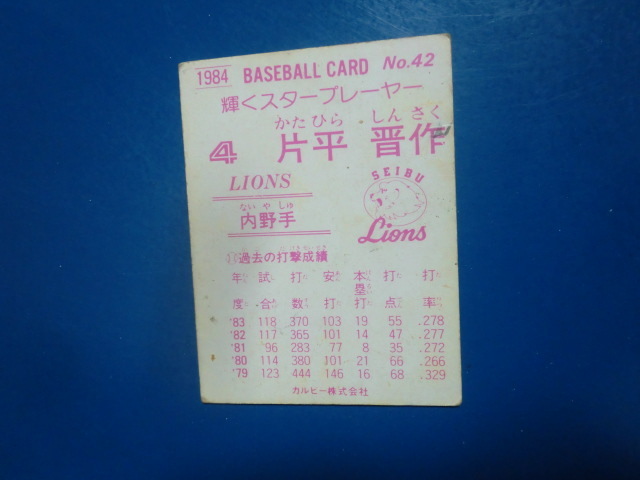 1984 BASEBALL CARD No.42
輝くスタープレーヤー
かた ひら しん さく
4 片平 晋作
LIONS
SEIBU
ない や しゅ
内野手
Lions
過去の打撃成績
年度 試合 打数 安打 本塁打 打点 打率
'83 118 370 103 19 55 .278
'82 117 365 101 14 47 .277
'81 96 283 77 8 35 .272
'80 114 380 101 21 66 .266
'79 123 444 146 16 68 .329
カルビー株式会社